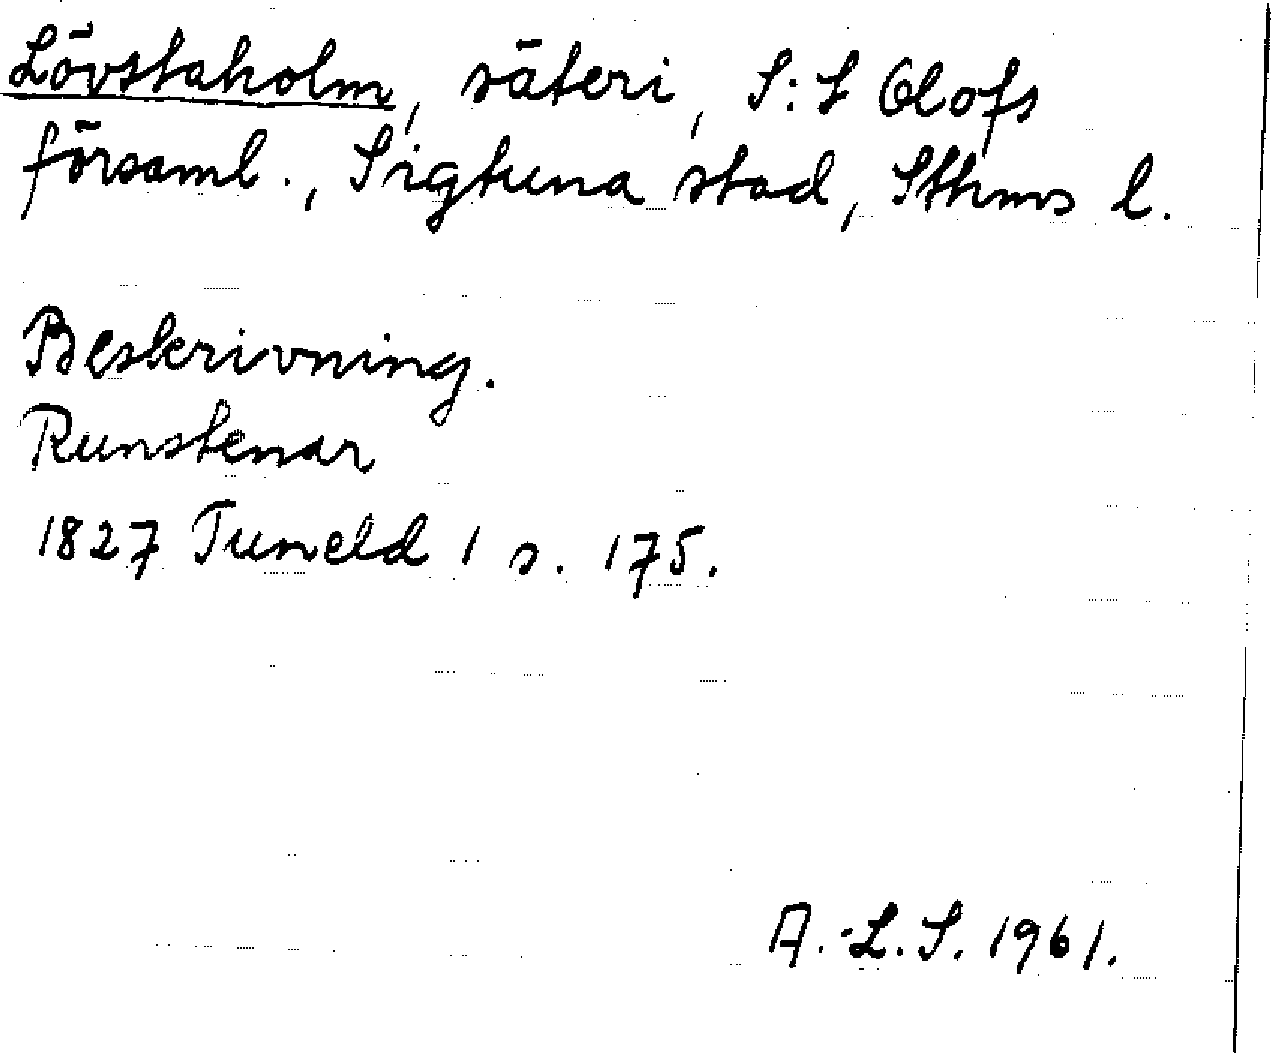 Lövstaholm, säteri, S:t Olofs
församl., Sigtuna stad, Sthms l.
Beskrivning.
Runstenar
1827 Tuneld 1 s. 175.
A.-L.S. 1961.